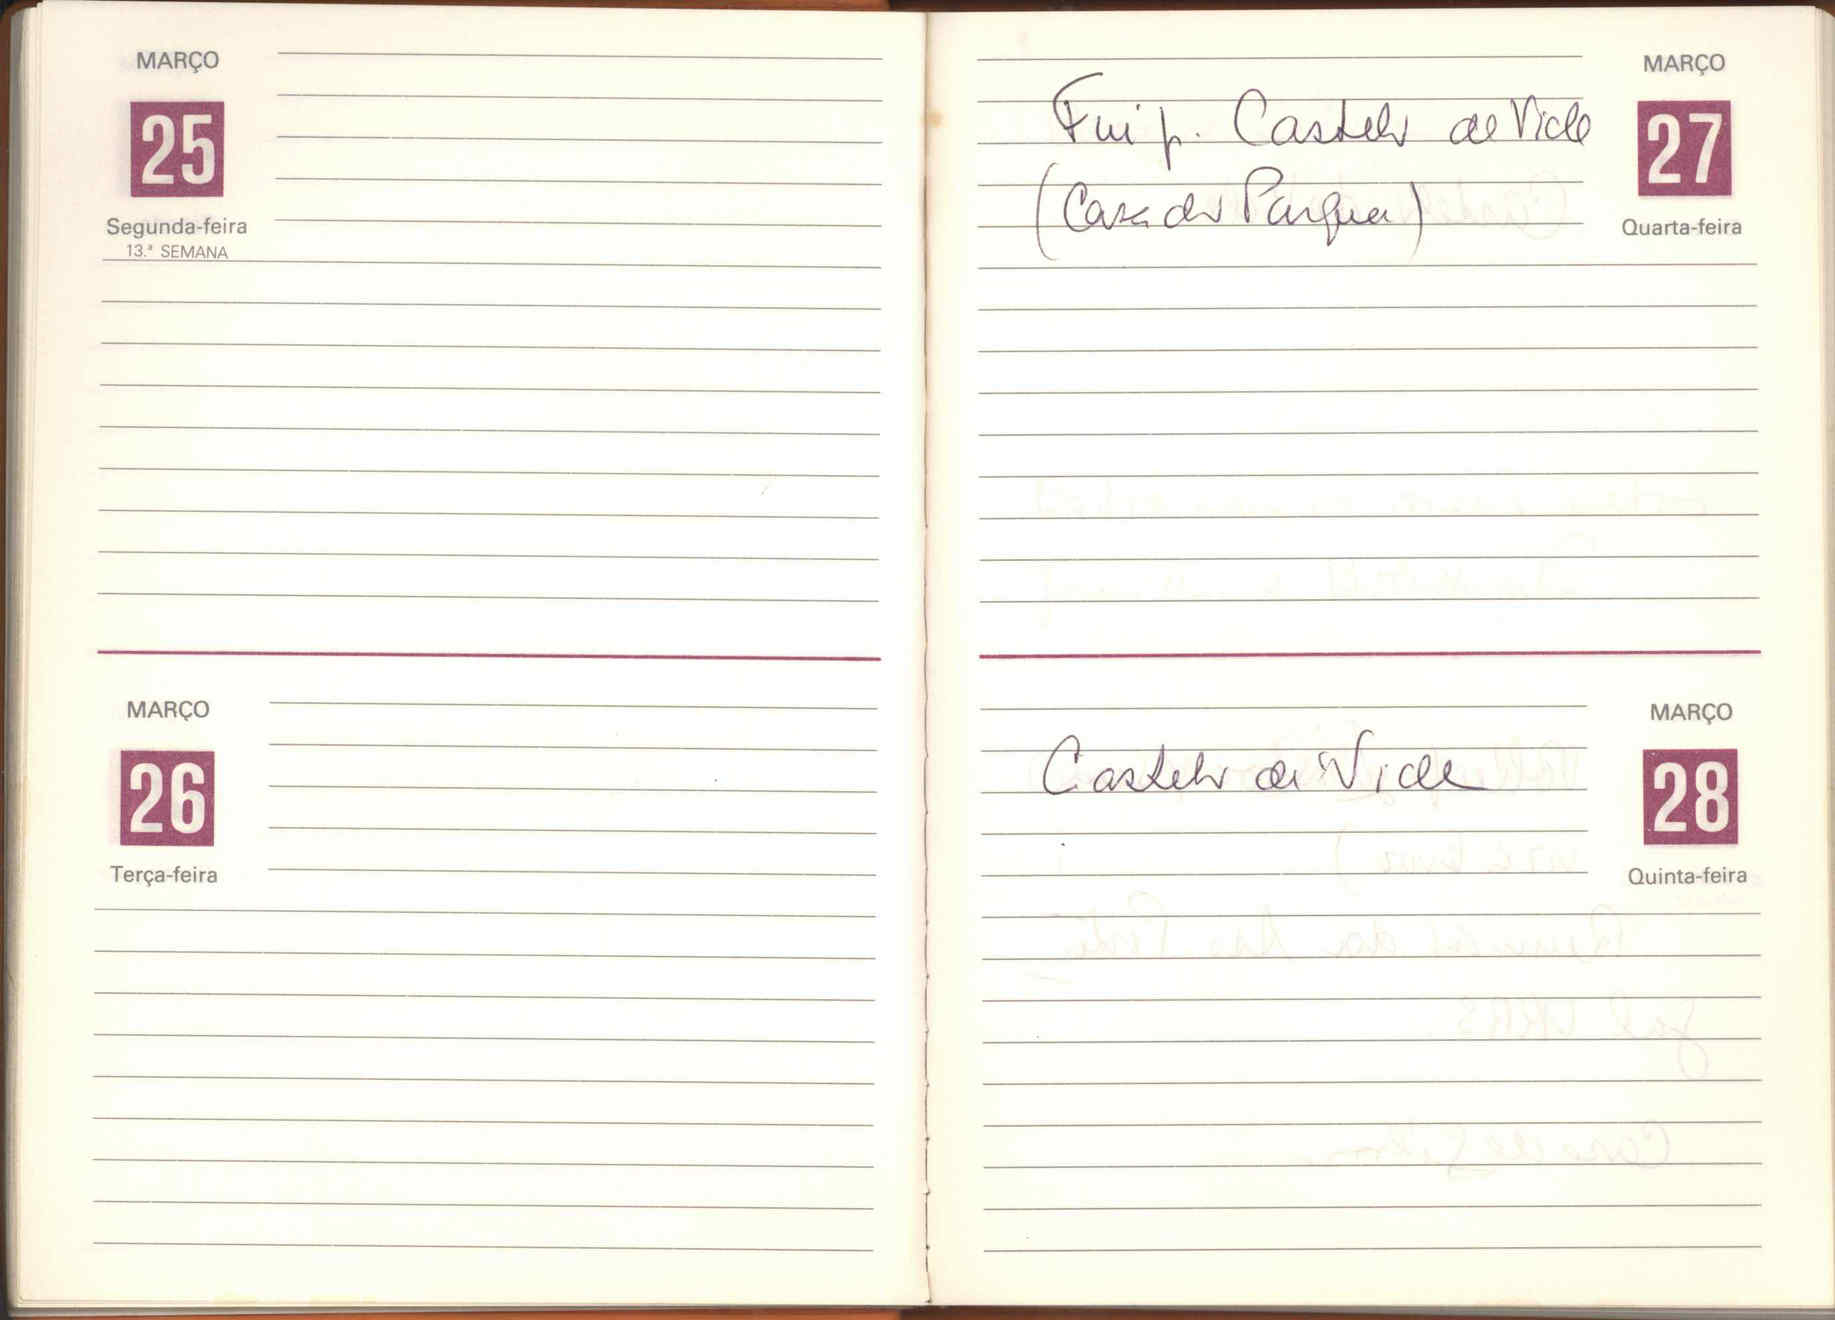 MARÇO
25
Segunda-feira
13.ª SEMANA
MARÇO
26
Terça-feira
MARÇO
27
Quarta-feira
Fui p. Castelo de Vide
(Casa do Parque)
MARÇO
28
Quinta-feira
Castelo de Vide